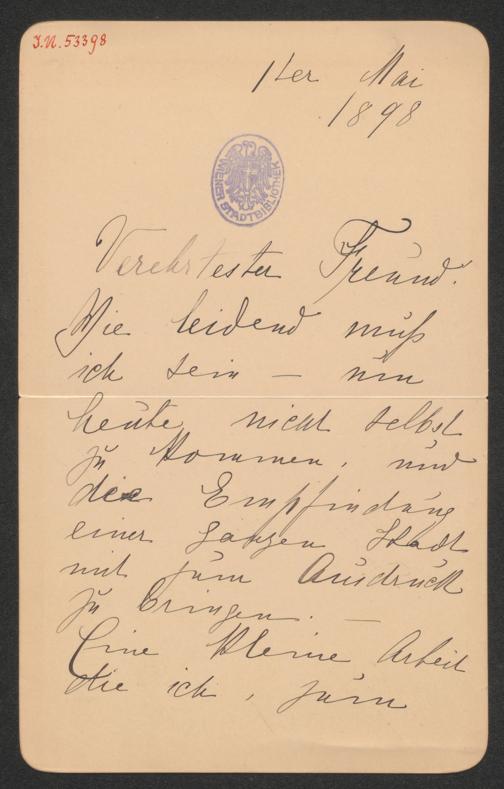 J.N. 53398
1ter Mai
1898
WIENER STADTBIBLIOTHEK
Verehrtester Freund.
Wie leidend muß
ich sein – um
heute nicht selbst
zu kommen, und
die Empfindung
einer ganzen Stadt
mit zum Ausdruck
zu bringen. –
Eine kleine Arbeit
die ich, zum